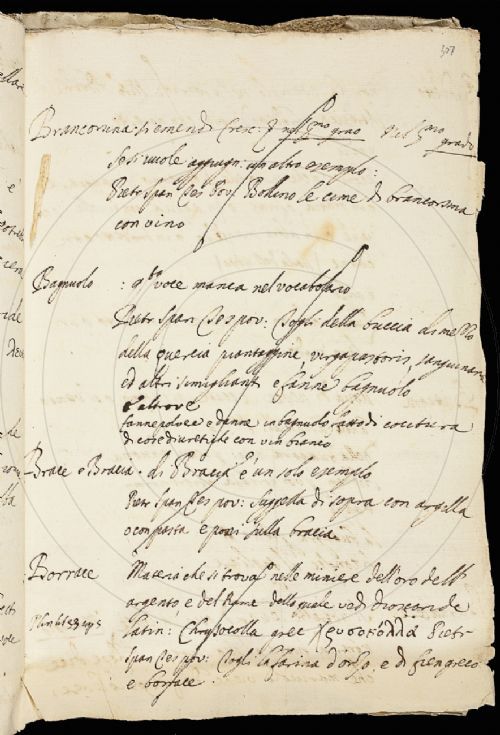 307
Brancorsina: si emendi Cresc: grao grado
Se si vuole aggiugn: un altro esempio:
Pietr Span Ces Pov Bollino le cime di brancorsina
con vino
Bagnuolo : voce manca nel vocabolario
Pietr Span Cespov: Togli della buccia di mezzo
della quercia piantaggine, virgapastoris, sanguinaria
ed altri simigliant e fanne bagnuolo
E altrove
fanne polvee e danne in bagnuolo fatto di cocitura
di cote diuretiche con vin bianco
Brace e Bracia. di Bracia è un solo esemplo
Pietr Span Cespov: suggella di sopra con argilla
o con pasta e poni sulla bracia
Borrace Materia che si trova nelle miniere dell'oro dell
argento e del Rame della quale vedi dioscoride
Plin lib 33 cap 5 latin: Chrysocolla grec χρυσοκόλλα Pietr
Span Cespov: Togli la farina d'orzo, e di fiengreco
e borrace.